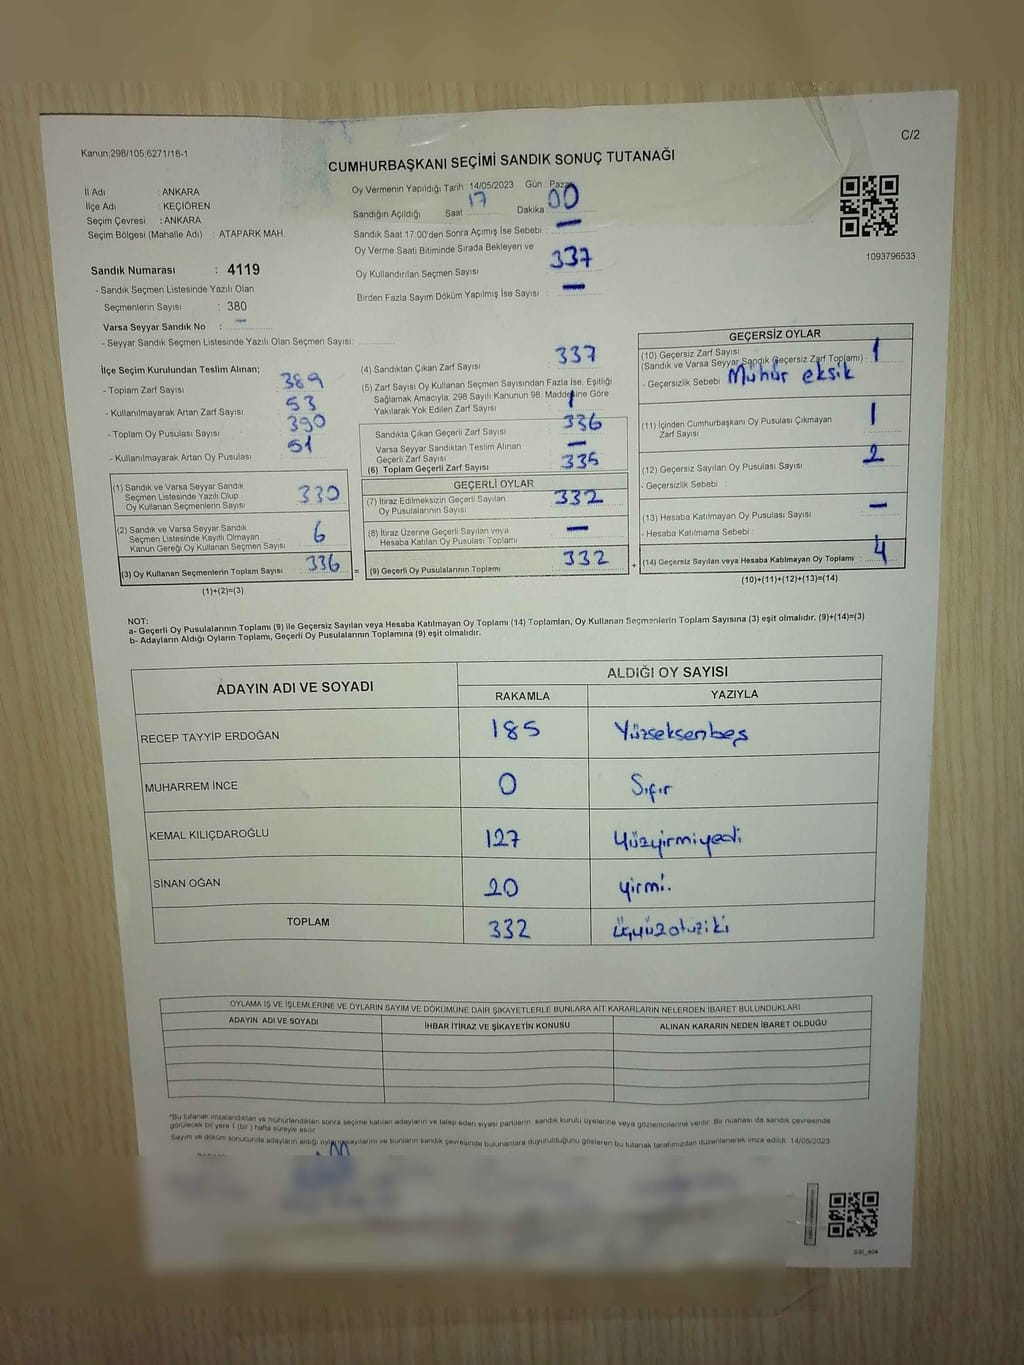 C/2
Kanun;298/105,6271/18-1
CUMHURBAŞKANI SEÇİMİ SANDIK SONUÇ TUTANAĞI
İl Adı : ANKARA
İlçe Adı : KEÇİÖREN
Seçim Çevresi : ANKARA
Seçim Bölgesi (Mahalle Adı) : ATAPARK MAH.
Oy Vermenin Yapıldığı Tarih : 14/05/2023 Gün : Pazar
Sandığın Açıldığı Saat 17 Dakika 00
Sandık Saat 17:00'den Sonra Açımış İse Sebebi : —
Oy Verme Saati Bitiminde Sırada Bekleyen ve
Oy Kullandırılan Seçmen Sayısı 337
Birden Fazla Sayım Döküm Yapılmış İse Sayısı : —
1093796533
Sandık Numarası : 4119
- Sandık Seçmen Listesinde Yazılı Olan
Seçmenlerin Sayısı : 380
Varsa Seyyar Sandık No : —
- Seyyar Sandık Seçmen Listesinde Yazılı Olan Seçmen Sayısı:
İlçe Seçim Kurulundan Teslim Alınan;
- Toplam Zarf Sayısı : 389
- Kullanılmayarak Artan Zarf Sayısı : 53
- Toplam Oy Pusulası Sayısı : 390
- Kullanılmayarak Artan Oy Pusulası : 51
(1) Sandık ve Varsa Seyyar Sandık
Seçmen Listesinde Yazılı Olup
Oy Kullanan Seçmenlerin Sayısı : 330
(2) Sandık ve Varsa Seyyar Sandık
Seçmen Listesinde Kayıtlı Olmayan
Kanun Gereği Oy Kullanan Seçmen Sayısı : 6
(3) Oy Kullanan Seçmenlerin Toplam Sayısı : 336
(1)+(2)=(3)
(4) Sandıktan Çıkan Zarf Sayısı : 337
(5) Zarf Sayısı Oy Kullanan Seçmen Sayısından Fazla İse, Eşitliği
Sağlamak Amacıyla; 298 Sayılı Kanunun 98. Maddesine Göre
Yakılarak Yok Edilen Zarf Sayısı : 1
Sandıkta Çıkan Geçerli Zarf Sayısı : 336
Varsa Seyyar Sandıktan Teslim Alınan
Geçerli Zarf Sayısı : —
(6) Toplam Geçerli Zarf Sayısı : 335
GEÇERLİ OYLAR
(7) İtiraz Edilmeksizin Geçerli Sayılan
Oy Pusulalarının Sayısı : 332
(8) İtiraz Üzerine Geçerli Sayılan veya
Hesaba Katılan Oy Pusulası Toplamı : —
= (9) Geçerli Oy Pusulalarının Toplamı : 332
GEÇERSİZ OYLAR
(10) Geçersiz Zarf Sayısı
(Sandık ve Varsa Seyyar Sandık Geçersiz Zarf Toplamı) : 1
- Geçersizlik Sebebi : Mühür eksik
(11) İçinden Cumhurbaşkanı Oy Pusulası Çıkmayan
Zarf Sayısı : 1
(12) Geçersiz Sayılan Oy Pusulası Sayısı : 2
- Geçersizlik Sebebi :
(13) Hesaba Katılmayan Oy Pusulası Sayısı : —
- Hesaba Katılmama Sebebi :
+ (14) Geçersiz Sayılan veya Hesaba Katılmayan Oy Toplamı : 4
(10)+(11)+(12)+(13)=(14)
NOT:
a- Geçerli Oy Pusulalarının Toplamı (9) ile Geçersiz Sayılan veya Hesaba Katılmayan Oy Toplamı (14) Toplamları, Oy Kullanan Seçmenlerin Toplam Sayısına (3) eşit olmalıdır. (9)+(14)=(3)
b- Adayların Aldığı Oyların Toplamı, Geçerli Oy Pusulalarının Toplamına (9) eşit olmalıdır.
ADAYIN ADI VE SOYADI
ALDIĞI OY SAYISI
RAKAMLA YAZIYLA
RECEP TAYYİP ERDOĞAN 185 Yüzseksenbeş
MUHARREM İNCE 0 Sıfır
KEMAL KILIÇDAROĞLU 127 Yüzyirmiyedi
SİNAN OĞAN 20 yirmi.
TOPLAM 332 üçyüzotuziki
OYLAMA İŞ VE İŞLEMLERİNE VE OYLARIN SAYIM VE DÖKÜMÜNE DAİR ŞİKAYETLERLE BUNLARA AİT KARARLARIN NELERDEN İBARET BULUNDUKLARI
ADAYIN ADI VE SOYADI İHBAR İTİRAZ VE ŞİKAYETİN KONUSU ALINAN KARARIN NEDEN İBARET OLDUĞU
*Bu tutanak imzalandıktan ve mühürlendikten sonra seçime katılan adayların ve talep eden siyasi partilerin sandık kurulu üyelerine veya gözlemcilerine verilir. Bir nüshası da sandık çevresinde
görülecek bir yere 1 (bir) hafta süreyle asılır
Sayım ve döküm sonucunda adayların aldığı oy sayılarını ve bunların sandık çevresinde bulunanlara duyurulduğunu gösteren bu tutanak tarafımızdan düzenlenerek imza edildi. 14/05/2023